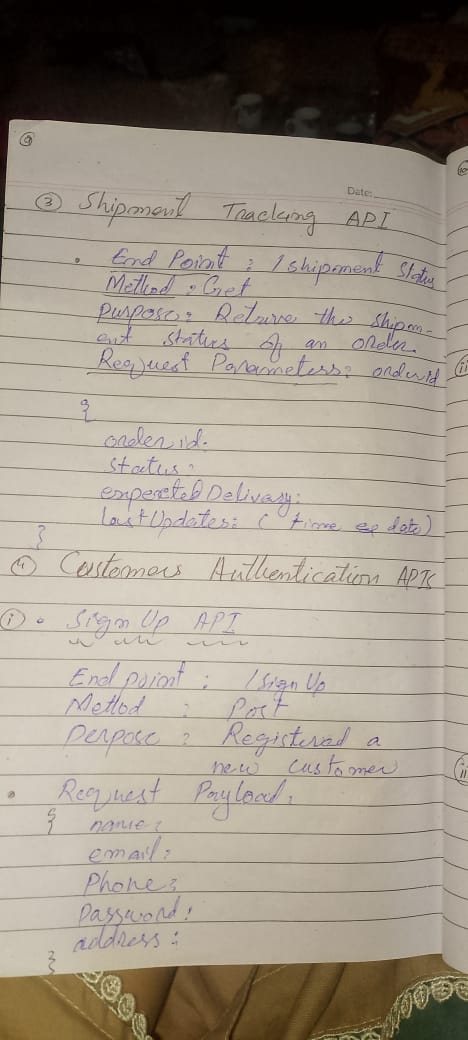 9
Date:
③ Shipment Tracking API
• End Point : / shipment Status
Method : Get
Purpose: Retrive the shipm-
ent status of an order.
Request Parameters: orderid
{
order id:
Status:
expereted Delivery:
last Updates: ( time or date)
}
④ Customers Authentication APIs
ⓘ • Sign Up API
End point : / Sign Up
Method : Post
Perpose : Registered a
new customer
• Request Payload:
{ name:
email:
Phone:
Password:
address:
}
10
ii
ii